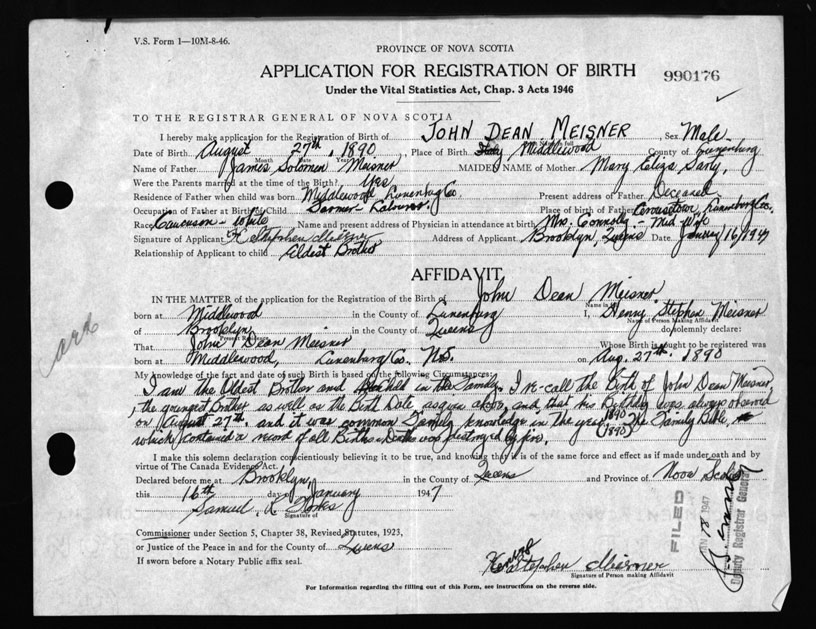 V.S. Form 1—10M-8-46.
PROVINCE OF NOVA SCOTIA
APPLICATION FOR REGISTRATION OF BIRTH
990176
Under the Vital Statistics Act, Chap. 3 Acts 1946
TO THE REGISTRAR GENERAL OF NOVA SCOTIA
I hereby make application for the Registration of Birth of JOHN DEAN MEISNER Sex Male
Date of Birth August 27th, 1890 Place of Birth Middlewood County of Lunenburg
Month Date Year
Name of Father James Solomen Meisner MAIDEN NAME of Mother Mary Eliza
Were the Parents married at the time of the Birth? Yes
Residence of Father when child was born Middlewood Lunenburg Co. Present address of Father Deceased
Occupation of Father at Birth of Child Farmer - Labourer. Place of birth of Father Lunenburg Co.
Race Caucasion White Name and present address of Physician in attendance at birth Mrs. Connolly - Mid Wife
Signature of Applicant H Stephen Meisner Address of Applicant Brooklyn, Queens Date January 16/1947
Relationship of Applicant to child Eldest Brother
AFFIDAVIT
IN THE MATTER of the application for the Registration of the Birth of John Dean Meisner
Name in full
born at Middlewood in the County of Lunenburg I, Henry Stephen Meisner
Name of Person Making Affidavit
of Brooklyn in the County of Queens do solemnly declare:
Present Residence
That John Dean Meisner Whose Birth is sought to be registered was
born at Middlewood, Lunenburg Co. N.S. on Aug. 27th, 1890
My knowledge of the fact and date of such Birth is based on the following Circumstances:
I am the Oldest Brother and in the Family. I re-call the Birth of John Dean Meisner,
the youngest Brother as well as the Birth Date, as given above, and that his Birthday was always observed
on August 27th, and it was common Family knowledge in the year 1890 (1890). The Family Bible
which contained a record of all Births & Deaths was destroyed by fire.
I make this solemn declaration conscientiously believing it to be true, and knowing that it is of the same force and effect as if made under oath and by
virtue of The Canada Evidence Act.
Declared before me at Brooklyn, in the County of Queens and Province of Nova Scotia
this 16th day of January 1947
Samuel
Signature of
Commissioner under Section 5, Chapter 38, Revised Statutes, 1923,
or Justice of the Peace in and for the County of Queens
If sworn before a Notary Public affix seal.
Stephen Meisner
Signature of Person making Affidavit
FILED
1947
Deputy Registrar General
For Information regarding the filling out of this Form, see instructions on the reverse side.